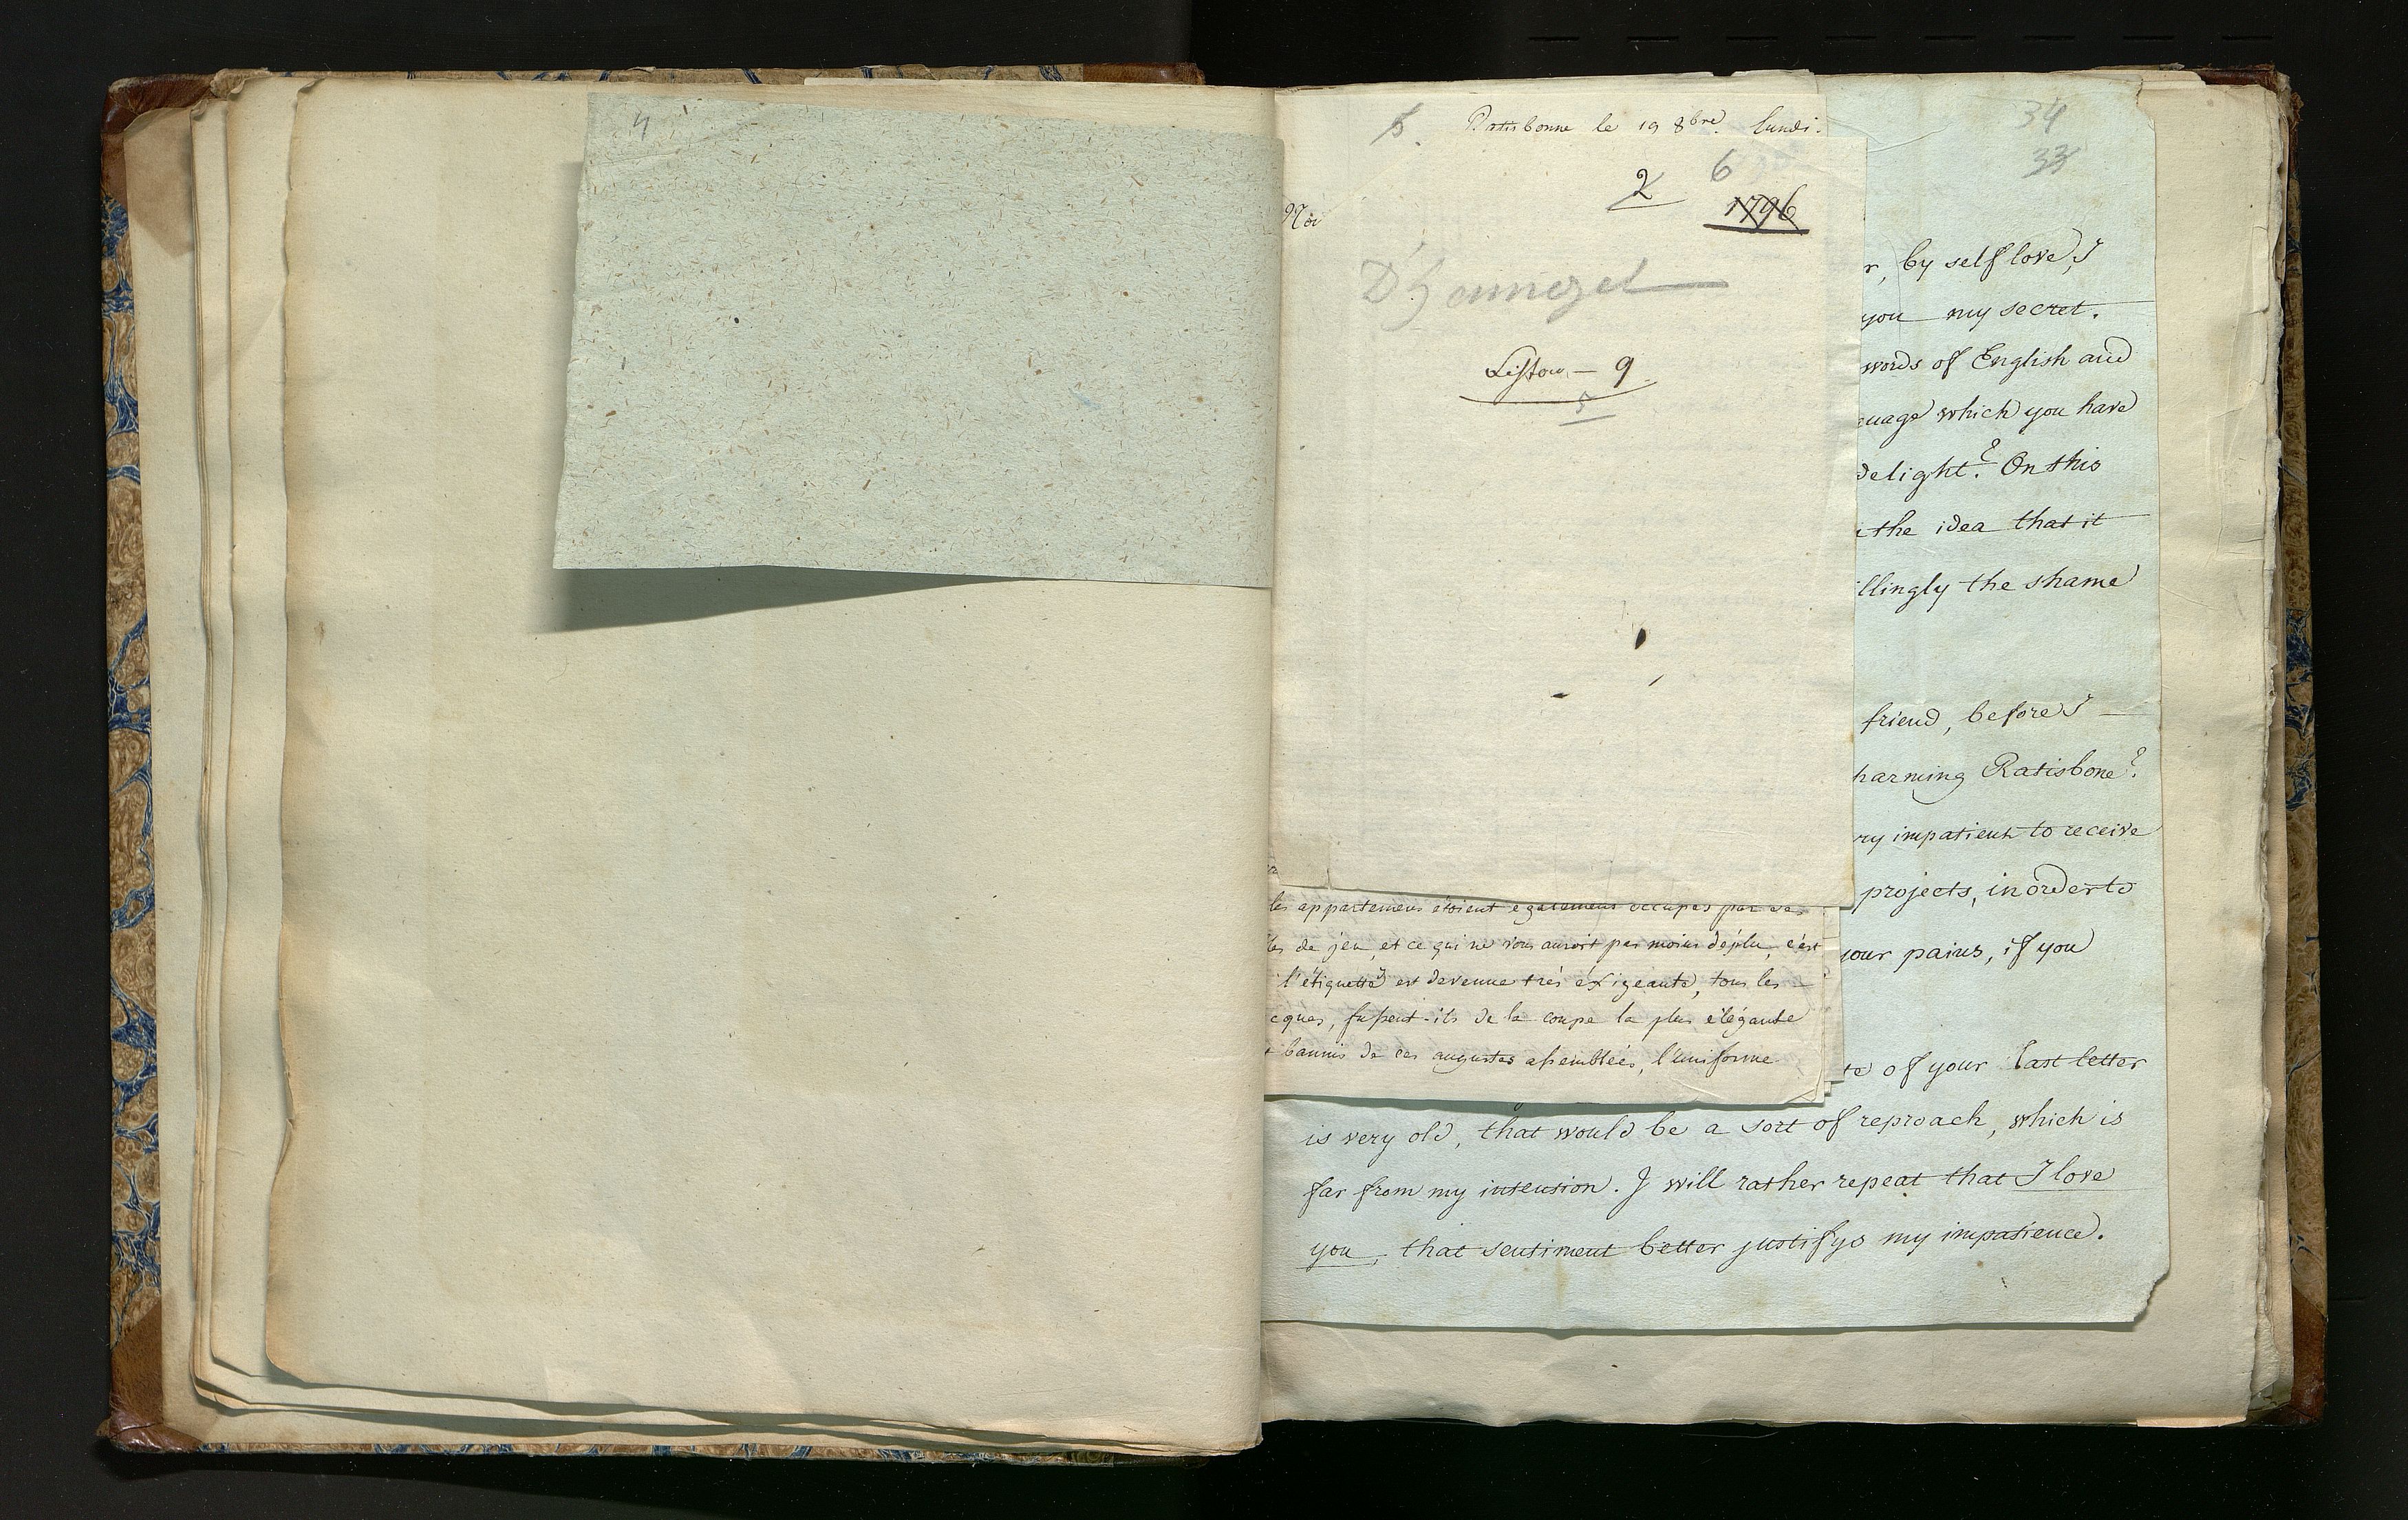 4
5. Ratisbonne le 19 8bre. lundi.
2 6
1796
Liston — 9
5
les appartemens étoient également occupés par des
de jeu, et ce qui ne vous auroit pas moins déplu, c'est
l'étiquette est devenue très éxigeante, tous les
fussent-ils de la coupe la plus élégante
bannis de ces augustes assemblées, l'uniforme
34
33
r, by self love, I
you my secret.
words of English and
guage which you have
delight? On this
the idea that it
llingly the shame
friend, before I
harming Ratisbone?
ry impatient to receive
projects, in order to
your pains, if you
te of your last letter
is very old, that would be a sort of reproach, which is
far from my intension. I will rather repeat that I love
you, that sentiment better justifys my impatience.